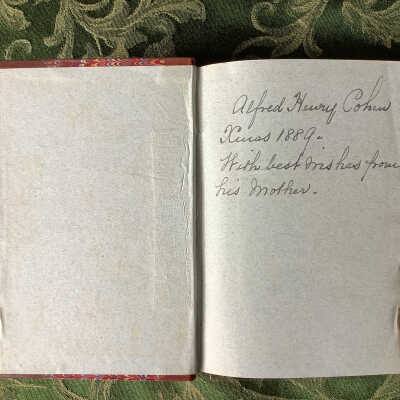 Alfred Henry Cohen
Xmas 1889.
With best wishes from
his Mother.